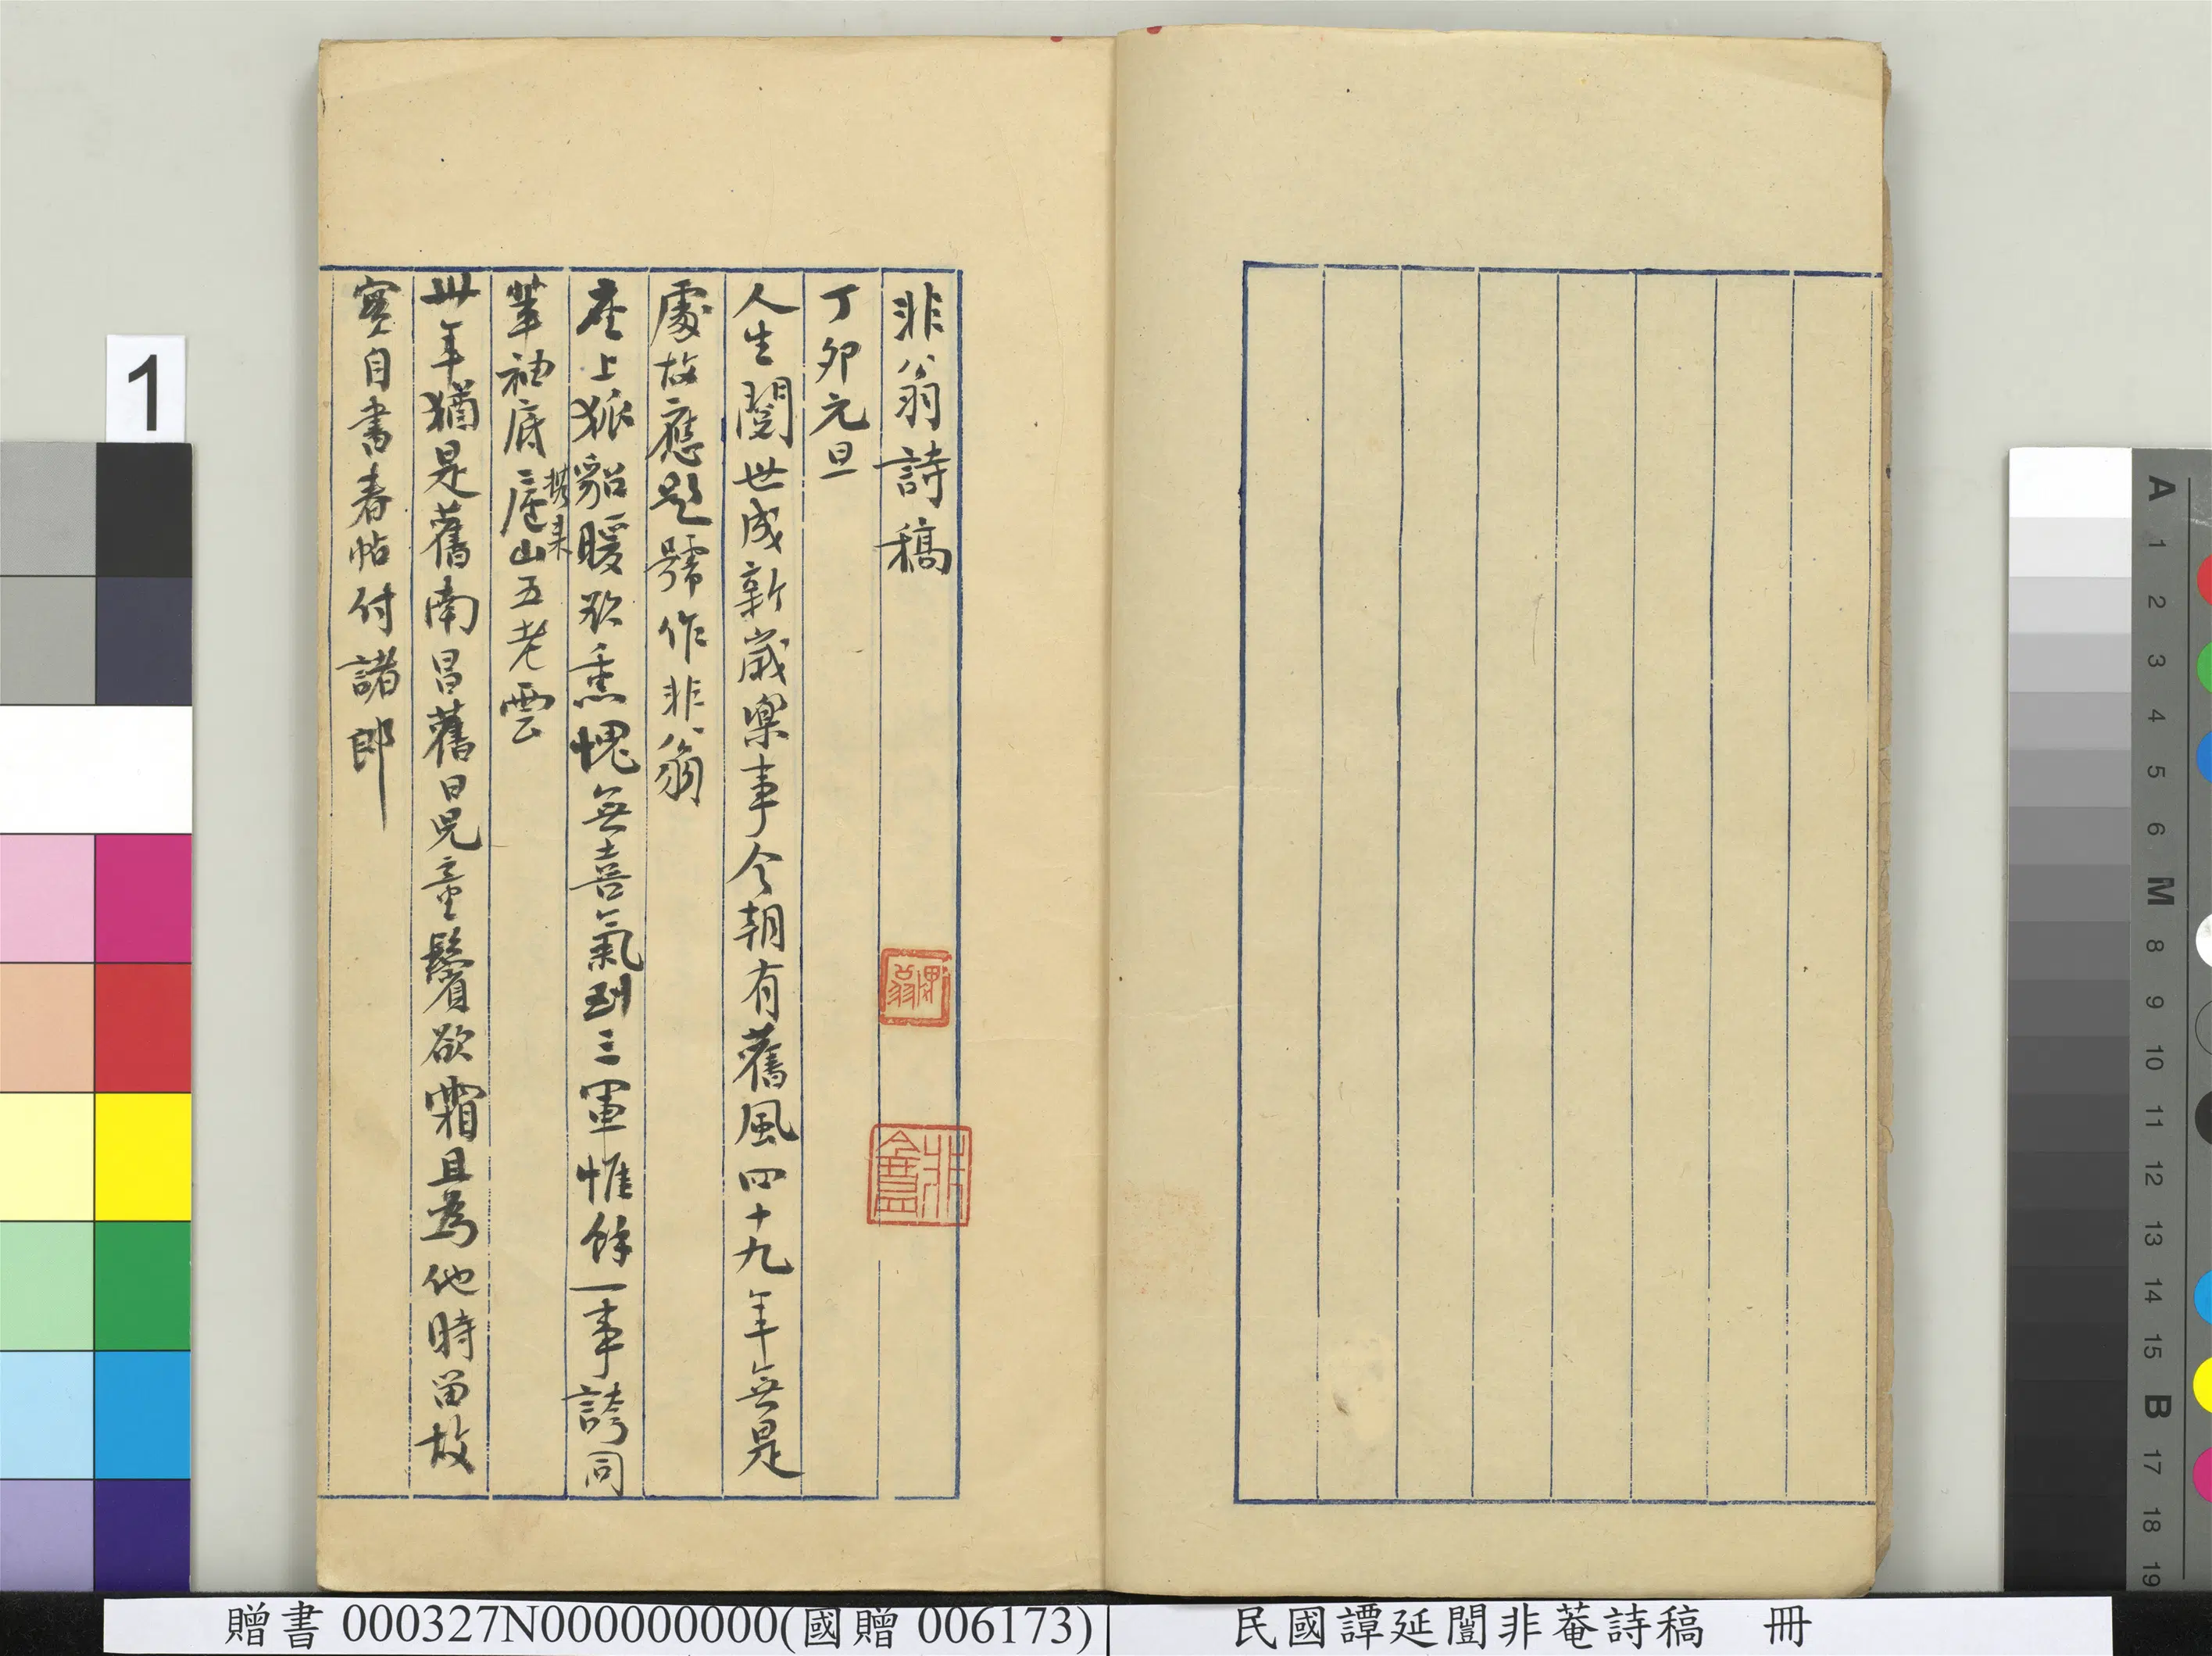 非翁詩稿
丁卯元旦
人生閱世成新歲樂事今朝有舊風四十九年無是
處故應題號作非翁
座上狐貂暖欲熏愧無喜氣到三軍惟餘一事誇同
輩袖底廬山五老雲
攜來
卅年猶是舊南昌舊日兒童鬢欲霜且為他時留故
實自書春帖付諸郎
非盦
1
贈書 000327N000000000(國贈 006173)
民國譚延闓非菴詩稿 冊
A
1
2
3
4
5
6
M
8
9
10
11
12
13
14
15
B
17
18
19